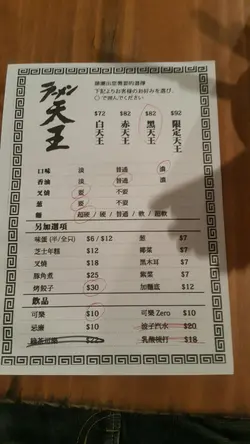 ラーメン天王
請圈出您需要的選擇
下記よりお客様のお好みを選び、
○で囲んでください。
$72 $82 $82 $92
白天王 赤天王 黑天王 限定天王
口味 淡 普通 濃
香油 淡 普通 濃
叉燒 要 不要
蔥 要 不要
麵 超硬 / 硬 / 普通 / 軟 / 超軟
另加選項
味蛋 (半/全只) $6 / $12 蔥 $7
芝士年糕 $12 椰菜 $7
叉燒 $18 黑木耳 $7
豚角煮 $25 紫菜 $7
烤餃子 $30 加麵底 $12
飲品
可樂 $10 可樂 Zero $10
忌廉 $10 波子汽水 $20
綠茶 $22 乳酸梳打 $18